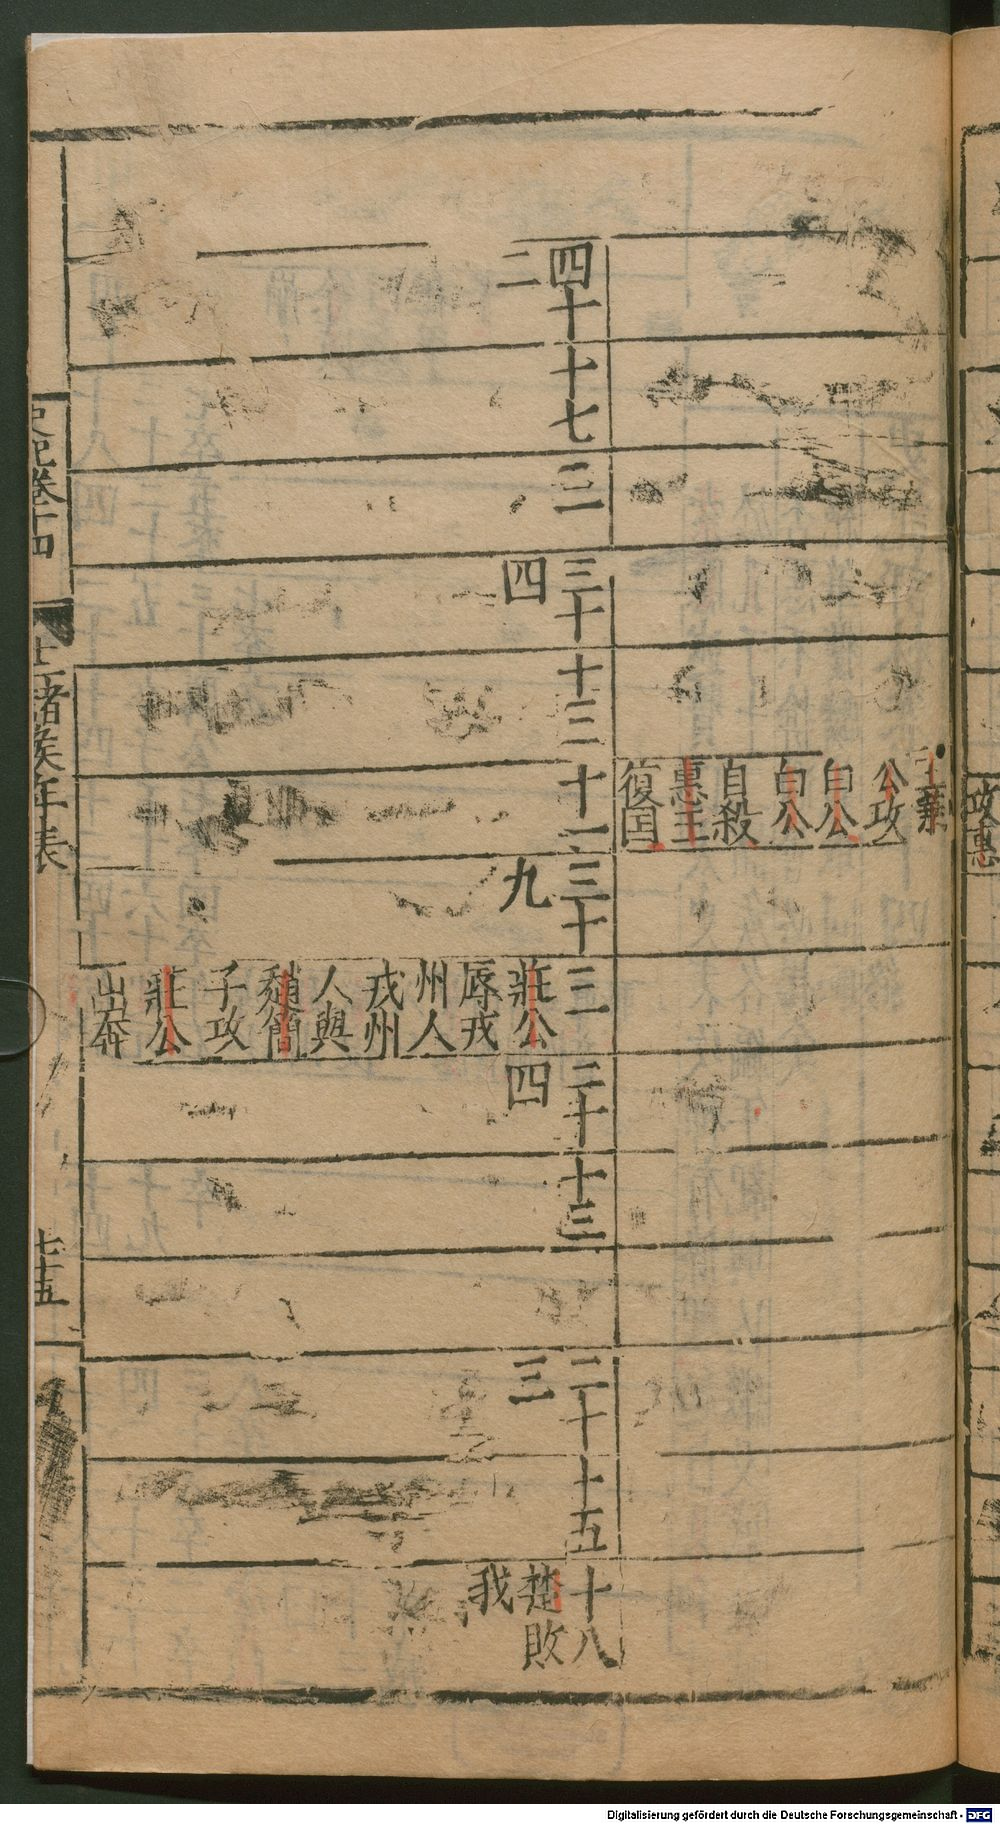 王葉
公攻
白公
白公
自殺
惠王
復国
四十
二
十七
三
三十
四
十三
十一
三十
九
三
莊公
辱戎
州人
戎州
人與
趙簡
子攻
莊公
出奔
二十
四
十三
二十
三
十五
十八
楚敗
我
史記卷十四
十二諸侯年表
七十五
Digitalisierung gefördert durch die Deutsche Forschungsgemeinschaft - DFG